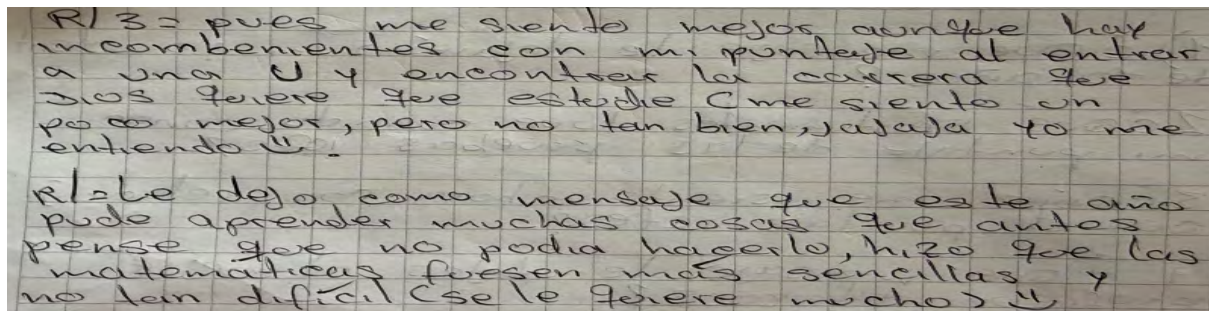 R/ 3= pues me siento mejor aunque hay
incombenientes con mi puntaje al entrar
a una U y encontrar la carrera que
Dios quiere que estudie (me siento un
poco mejor, pero no tan bien, jajaja yo me
entiendo ü.
R/= Le dejo como mensaje que este año
pude aprender muchas cosas que antes
pense que no podia hacerlo, hizo que las
matemáticas fuesen más sencillas y
no tan difícil (se le quiere mucho) ü